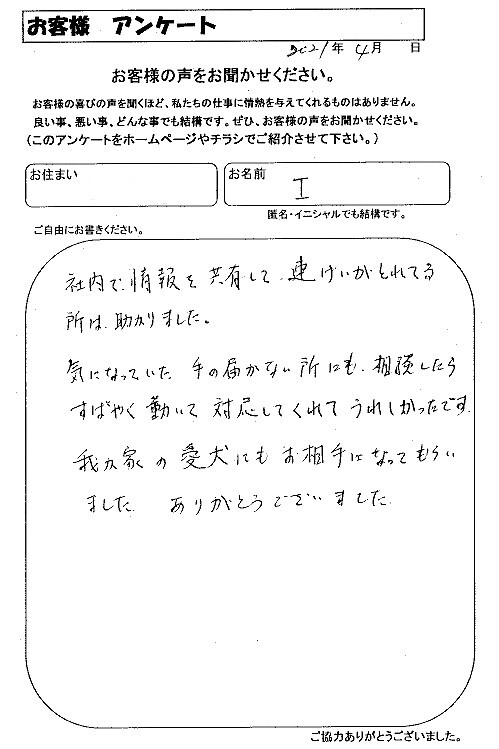 お客様 アンケート
2021年 4月 日
お客様の声をお聞かせください。
お客様の喜びの声を聞くほど、私たちの仕事に情熱を与えてくれるものはありません。
良い事、悪い事、どんな事でも結構です。ぜひ、お客様の声をお聞かせください。
(このアンケートをホームページやチラシでご紹介させて下さい。)
お住まい
お名前 I
匿名・イニシャルでも結構です。
ご自由にお書きください。
社内で情報を共有して、連けいがとれてる
所は、助かりました。
気になっていた 手の届かない所にも、相談したら
すばやく動いて対応してくれてうれしかったです。
我が家の愛犬にもお相手になってもらい
ました。 ありがとうございました。
ご協力ありがとうございました。